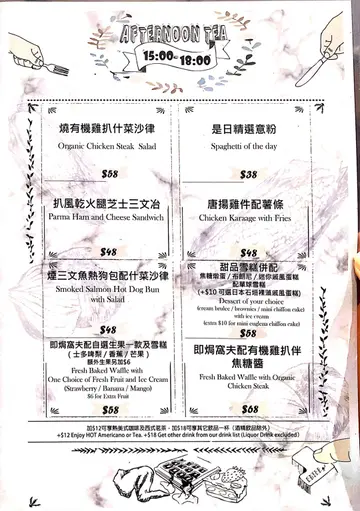 AFTERNOON TEA
15:00-18:00
燒有機雞扒什菜沙律
Organic Chicken Steak Salad
$58
是日精選意粉
Spaghetti of the day
$38
扒風乾火腿芝士三文冶
Parma Ham and Cheese Sandwich
$48
唐揚雞件配薯條
Chicken Karaage with Fries
$48
煙三文魚熱狗包配什菜沙律
Smoked Salmon Hot Dog Bun
with Salad
$48
甜品雪糕併配
焦糖燉蛋 / 布朗尼 / 迷你戚風蛋糕
配單球雪糕
(+$10 可選日本石垣裸藻戚風蛋糕)
Dessert of your choice
(cream brulee / brownies / mini chiffon cake)
with ice cream
(extra $10 for mini euglena chiffon cake)
$58
即焗窩夫配自選生果一款及雪糕
( 士多啤梨 / 香蕉 / 芒果 )
額外生果另加$6
Fresh Baked Waffle with
One Choice of Fresh Fruit and Ice Cream
(Strawberry / Banana / Mango)
$6 for Extra Fruit
$58
即焗窩夫配有機雞扒伴
焦糖醬
Fresh Baked Waffle with Organic
Chicken Steak
$68
加$12可享熱美式咖啡及西式茗茶，加$18可享其它飲品一杯（酒精飲品除外）
+$12 Enjoy HOT Americano or Tea. +$18 Get other drink from our drink list (Liquor Drink excluded)